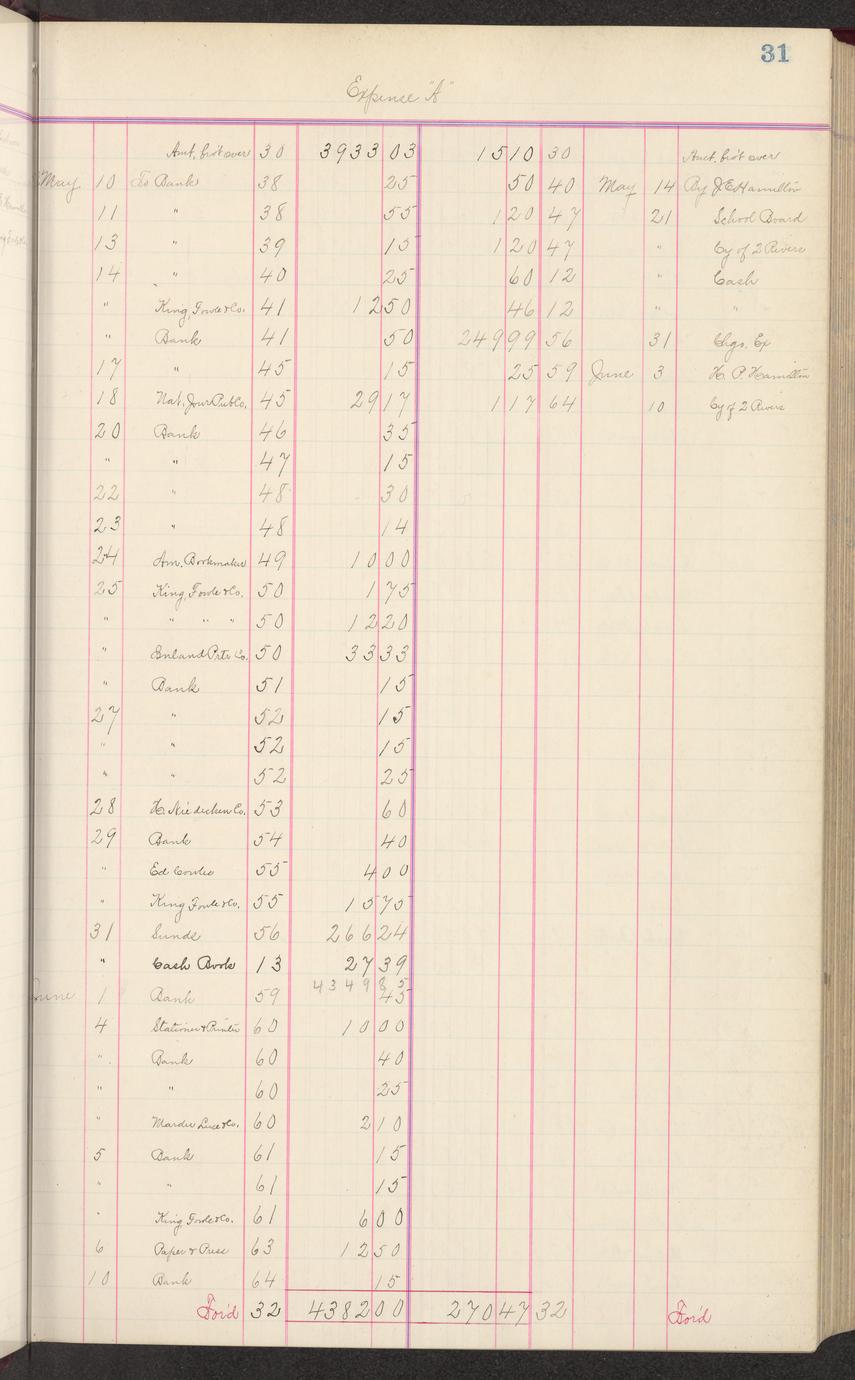 31
Expense "A"
Amt. bro't over 30 3933 03 1510 30 Amt. bro't over
May 10 To Bank 38 25 50 40 May 14 By J E Hamilton
11 " 38 55 120 47 21 School Board
13 " 39 15 120 47 " Cy of 2 Rivers
14 " 40 25 60 12 " Cash
" King, Fowle & Co. 41 12 50 46 12 " "
" Bank 41 50 24999 56 31 Chgs. Ex
17 " 45 15 25 59 June 3 H. P. Hamilton
18 Nat. Jour Pub Co. 45 29 17 117 64 10 Cy of 2 Rivers
20 Bank 46 35
" " 47 15
22 " 48 30
23 " 48 14
24 Am. Bookmaker 49 10 00
25 King, Fowle & Co. 50 1 75
" " " " 50 12 20
" Inland Prtr Co. 50 33 33
" Bank 51 15
27 " 52 15
" " 52 15
" " 52 25
28 H. Niedecken Co. 53 60
29 Bank 54 40
" Ed 55 4 00
" King Fowle & Co. 55 15 75
31 Sunds 56 266 24
" Cash Book 13 27 39
4349 85
June 1 Bank 59 45
4 Stationer & Printer 60 10 00
" Bank 60 40
" " 60 25
" Marder Luse & Co. 60 2 10
5 Bank 61 15
" " 61 15
" King Fowle & Co. 61 6 00
6 Paper & Press 63 12 50
10 Bank 64 15
For'd 32 4382 00 27047 32 For'd